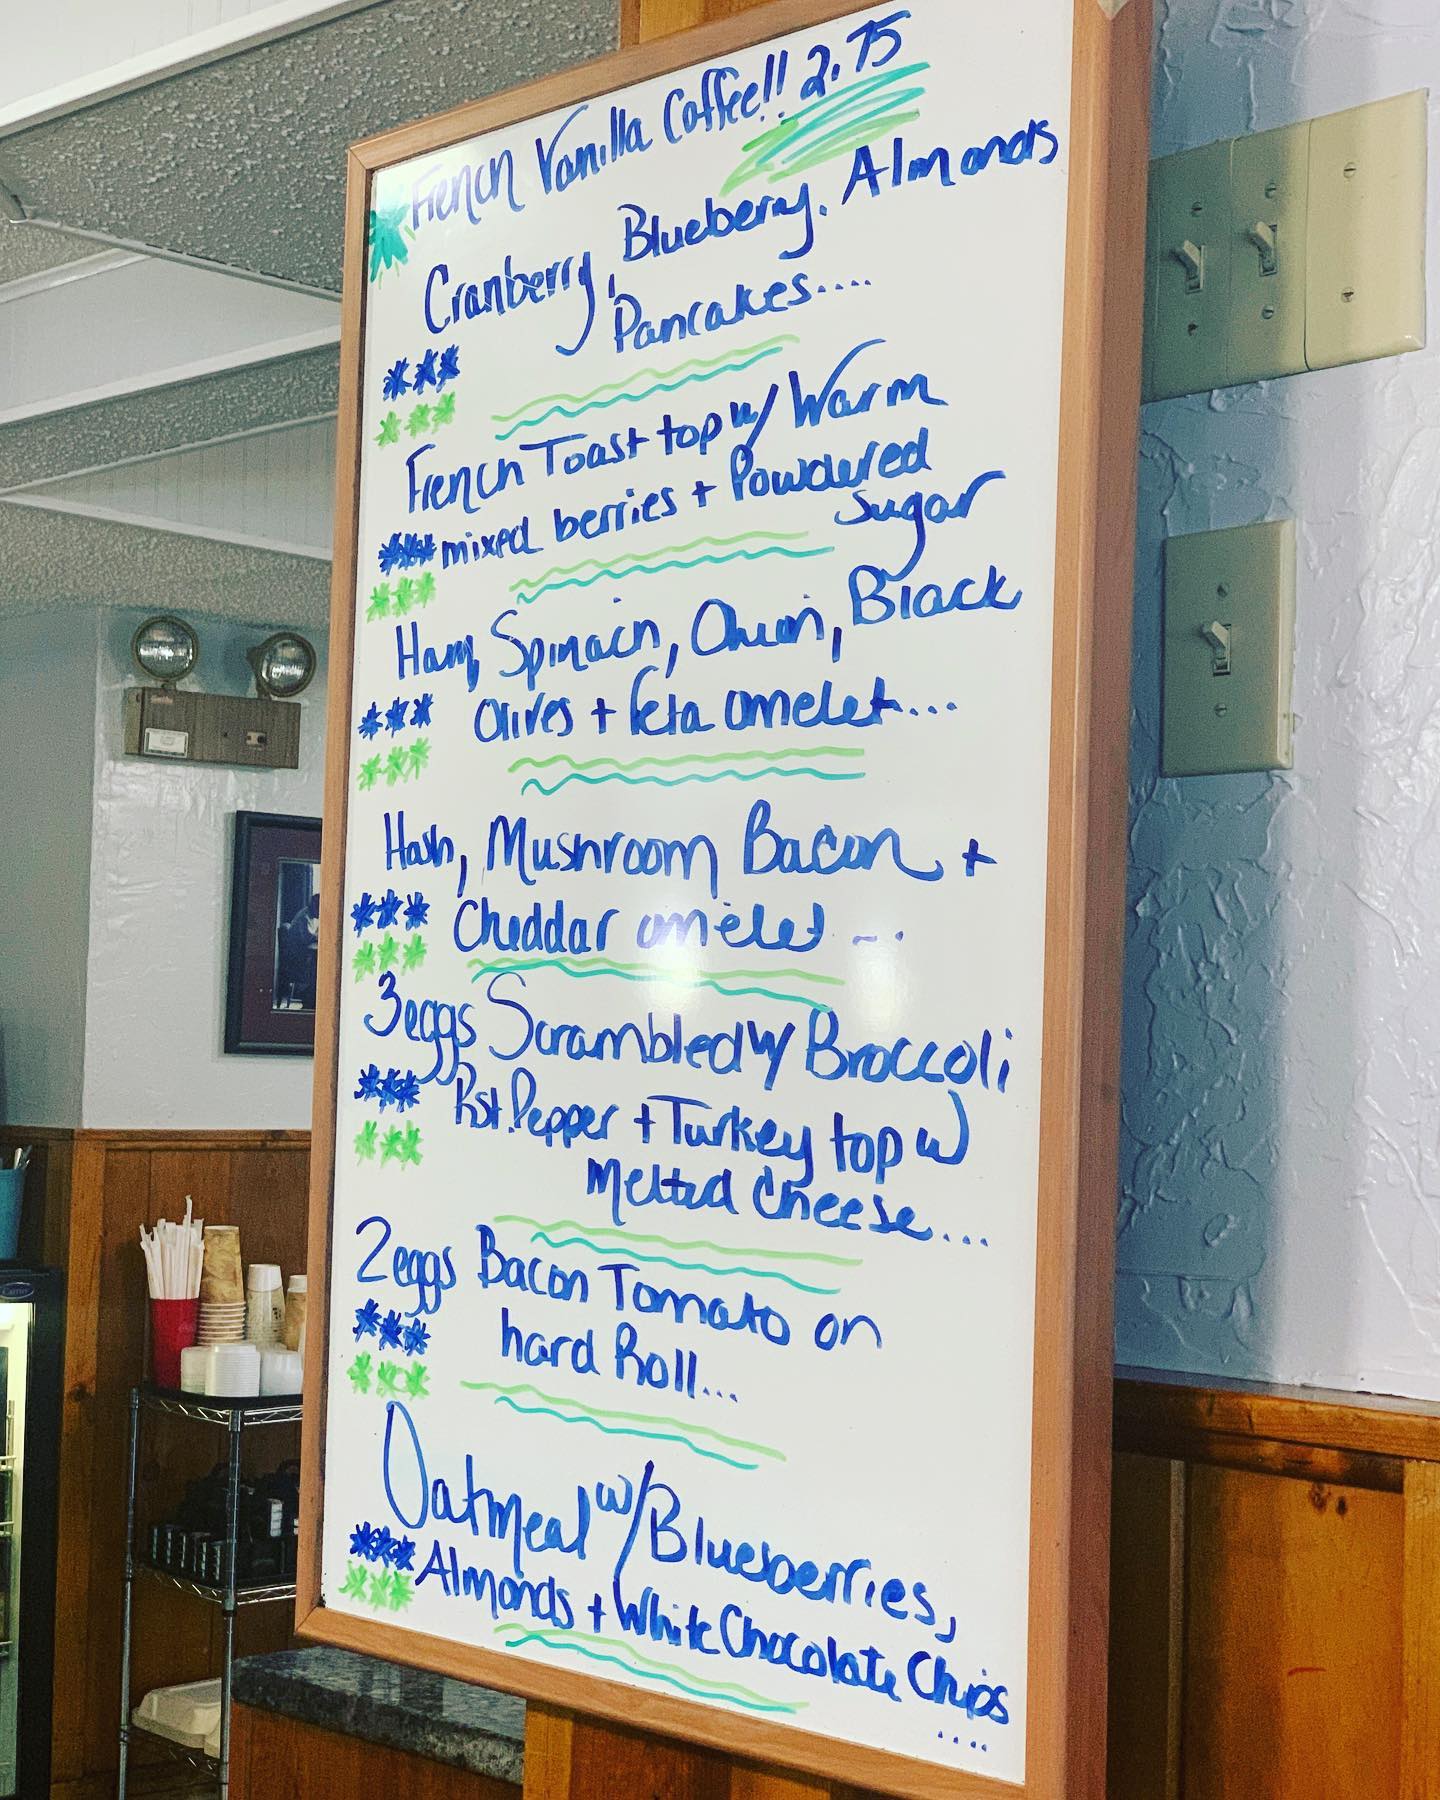 French Vanilla Coffee!! 2.75
Cranberry, Blueberry, Almonds
Pancakes....
French Toast top w/ Warm
mixed berries + Powdered
Sugar
Ham, Spinach, Onion, Black
olives + feta omelet....
Hash, Mushroom Bacon +
Cheddar omelet ...
3eggs Scrambled w/ Broccoli
Rst. Pepper + Turkey top w/
Melted Cheese...
2eggs Bacon Tomato on
hard Roll...
Oatmeal w/ Blueberries,
Almonds + White Chocolate Chips
....